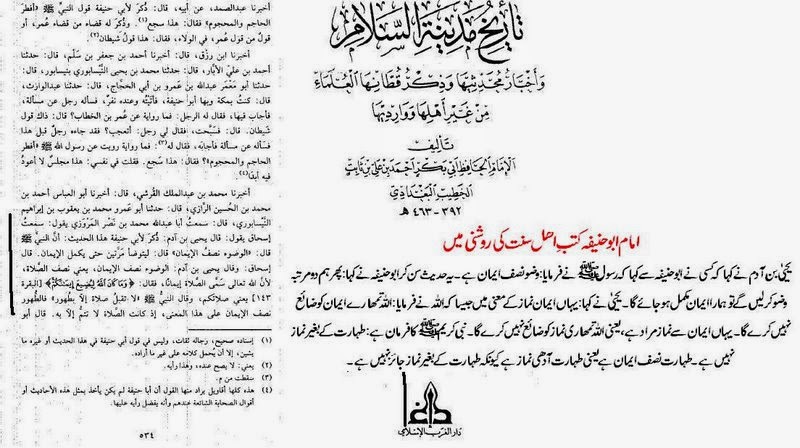 تاريخ مدينة السلام
وأخبار محدثيها وذكر قطانها العلماء
من غير أهلها ووارديها
تأليف
الإمام الحافظ أبي بكر أحمد بن علي بن ثابت
الخطيب البغدادي
٣٩٢ - ٤٦٣ هـ
امام ابو حنیفہ کتب اھل سنت کی روشنی میں
یحیٰی بن آدم نے کہا کہ کسی نے ابو حنیفہ سے کہا کہ رسول ﷺ نے فرمایا: وضو نصف ایمان ہے۔ یہ حدیث سن کر ابو حنیفہ نے کہا: پھر ہم دو مرتبہ
وضو کر لیں گے تو ہمارا ایمان مکمل ہو جائے گا۔ یحیٰی نے کہا: یہاں ایمان نماز کے معنی میں جیسا کہ اللہ نے فرمایا: اللہ تمھارے ایمان کو ضائع
نہیں کرے گا۔ یہاں ایمان سے نماز مراد ہے، یعنی اللہ تمھاری نماز کو ضائع نہیں کرے گا۔ نبی کریم ﷺ کا فرمان ہے: طہارت کے بغیر نماز
نہیں ہے۔ طہارت نصف ایمان ہے یعنی طہارت آدھی نماز ہے کیونکہ طہارت کے بغیر نماز جائز نہیں ہے۔
دار الغرب الإسلامي
أخبرنا عبدالصمد، عن أبيه، قال: ذُكر لأبي حنيفة قول النبي ﷺ «أفطر
الحاجم والمحجوم» فقال: هذا سجع(١). وذُكر له قضاء من قضاء عُمر، أو
قول من قول عُمر، في الولاء، فقال: هذا قول شيطان(٢).
أخبرنا ابن رزق، قال: أخبرنا أحمد بن جعفر بن سَلْم، قال: حدثنا
أحمد بن علي الأبّار، قال: حدثنا محمد بن يحيى النيسابوري بنيسابور، قال:
حدثنا أبو مَعْمَر عبدالله بن عمرو بن أبي الحجاج، قال: حدثنا عبدالوارث،
قال: كنتُ بمكة وبها أبو حنيفة، فأتيتُه وعنده نفرٌ، فسأله رجل عن مسألة،
فأجاب فيها، فقال له الرجل: فما رواية عن عُمر بن الخطاب؟ قال: ذاك قول
شيطان. قال: فسبّحت، فقال لي رجل: أتعجب؟ فقد جاءه رجل قبل هذا
فسأله عن مسألة فأجابه، فقال له(٣): فما رواية رويت عن رسول الله ﷺ «أفطر
الحاجم والمحجوم»؟ فقال: هذا سجع. فقلت في نفسي: هذا مجلسٌ لا أعودُ
فيه أبدًا(٤).
أخبرنا محمد بن عبدالملك القرشي، قال: أخبرنا أبو العباس أحمد بن
محمد بن الحسين الرازي، قال: حدثنا أبو عَمرو محمد بن يعقوب بن إبراهيم
النَّيسابوري، قال: سمعتُ أبا عبدالله محمد بن نصر المروزي يقول: سمعتُ
إسحاق يقول: قال يحيى بن آدم: ذُكر لأبي حنيفة هذا الحديث: أنَّ النبيَّ ﷺ
قال: «الوضوء نصفُ الإيمان» قال: ليتوضأ مرّتين حتى يكمل الإيمان. قال
إسحاق: وقال يحيى بن آدم: الوضوء نصف الإيمان، يعني نصف الصَّلاة،
لأنّ الله تعالى سمّى الصّلاة إيمانًا، فقال: ﴿وَمَا كَانَ اللَّهُ لِيُضِيعَ إِيمَانَكُمْ﴾ [البقرة
١٤٣] يعني صلاتكم، وقال النبي ﷺ «لا تُقبل صلاة إلا بطهور» فالطُّهور
نصف الإيمان على هذا المعنى، إذ كانت الصّلاة لا تتمّ إلا به. قال أبو
(١) إسناده صحيح، رجاله ثقات، وليس في قول أبي حنيفة في هذا الحديث أو غيره ما
يشين، إلا أن يُحمل كلامه على غير ما أراده.
(٢) يعني: لا يصح عنده، وهذا رأيه.
(٣) سقطت من م.
(٤) هذه كلها أقاويل يراد منها القول أن أبا حنيفة لم يكن يأخذ بمثل هذه الأحاديث أو
أقوال الصحابة الشائعة عندهم وأنه يفضل رأيه عليها.
٥٣٤